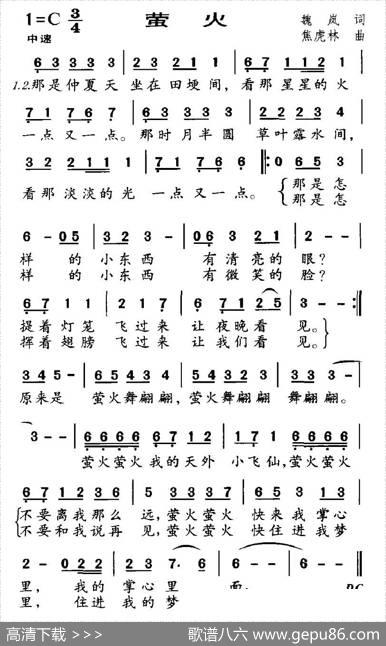 1=C 3/4 萤火 魏岚 词
中速 焦虎林 曲
6 3 3 3 3 | 6 2 3 3 3 | 7 1 2 1 1 1 |
1.2.那是仲夏天 坐在田埂间, 看那星星的火
7 1 7 6 7 | 6 3 3 3 3 | 6 2 3 3 3 |
一点又一点。那时月半圆 草叶露水间,
3 2 2 1 1 1 | 7 1 7 6 6 ‖: 0 6 5 3 |
看那淡淡的光 一点又一点。 那是怎
那是怎
6 - 0 5 | 3 2 3 - | 0 6 3 2 1 | 3 - - |
样 的 小东西 有清亮的眼?
样 的 小东西 有微笑的脸?
6 7 1 1 | 2 1 7 | 6 7 1 2 5 | 3 - - |
提着灯笼 飞过来 让夜晚看见。
挥着翅膀 飞过来 让我们看见。
3 4 5 - | 6 5 4 3 2 | 5 4 3 2 1 | 3 3 3 - |
原来是 萤火舞翩翩, 萤火舞翩翩 舞翩翩。
3 - - | 6 6 6 6 6 7 1 2 | 1 7 1 6 6 6 6 |
萤火萤火我的天外 小飞仙,萤火萤火
6 7 1 2 3 6 | 3 3 3 3 6 5 3 1 3 |
不要离我那么 远,萤火萤火 快来我掌心
不要和我说再 见,萤火萤火 快住进我梦
2 - 0 2 2 | 2 3 7· 6 | 6 - - :‖
里, 我的 掌心里 面。 D.C
里, 住进 我的梦
高清下载 >>> 歌谱八六 www.gepu86.com